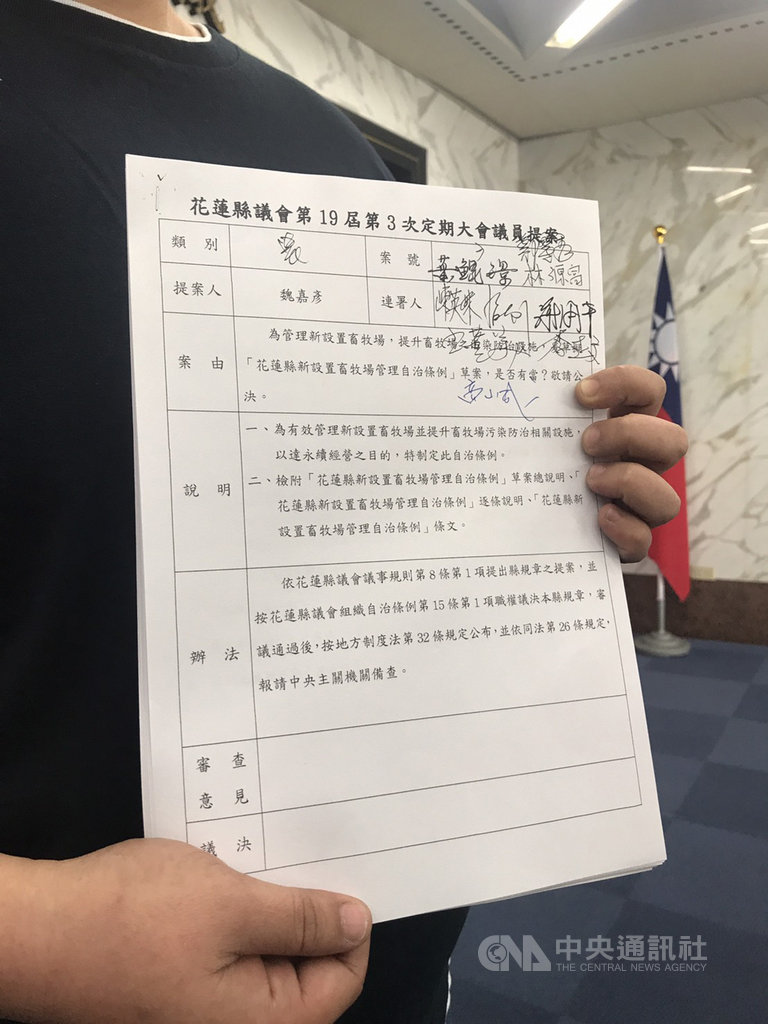 花蓮縣議會第19屆第3次定期大會議員提案
類別 農 案號 3
提案人 魏嘉彥 連署人
葉鯤璟 林源富
案由
為管理新設置畜牧場，提升畜牧場之污染防治設施，
「花蓮縣新設置畜牧場管理自治條例」草案，是否有當？敬請公
決。
說明
一、為有效管理新設置畜牧場並提升畜牧場污染防治相關設施，
以達永續經營之目的，特制定此自治條例。
二、檢附「花蓮縣新設置畜牧場管理自治條例」草案總說明、「
花蓮縣新設置畜牧場管理自治條例」逐條說明、「花蓮縣新
設置畜牧場管理自治條例」條文。
辦法
依花蓮縣議會議事規則第8條第1項提出縣規章之提案，並
按花蓮縣議會組織自治條例第15條第1項職權議決本縣規章，審
議通過後，按地方制度法第32條規定公布，並依同法第26條規定，
報請中央主關機關備查。
審查
意見
議決
CNA 中央通訊社
THE CENTRAL NEWS AGENCY